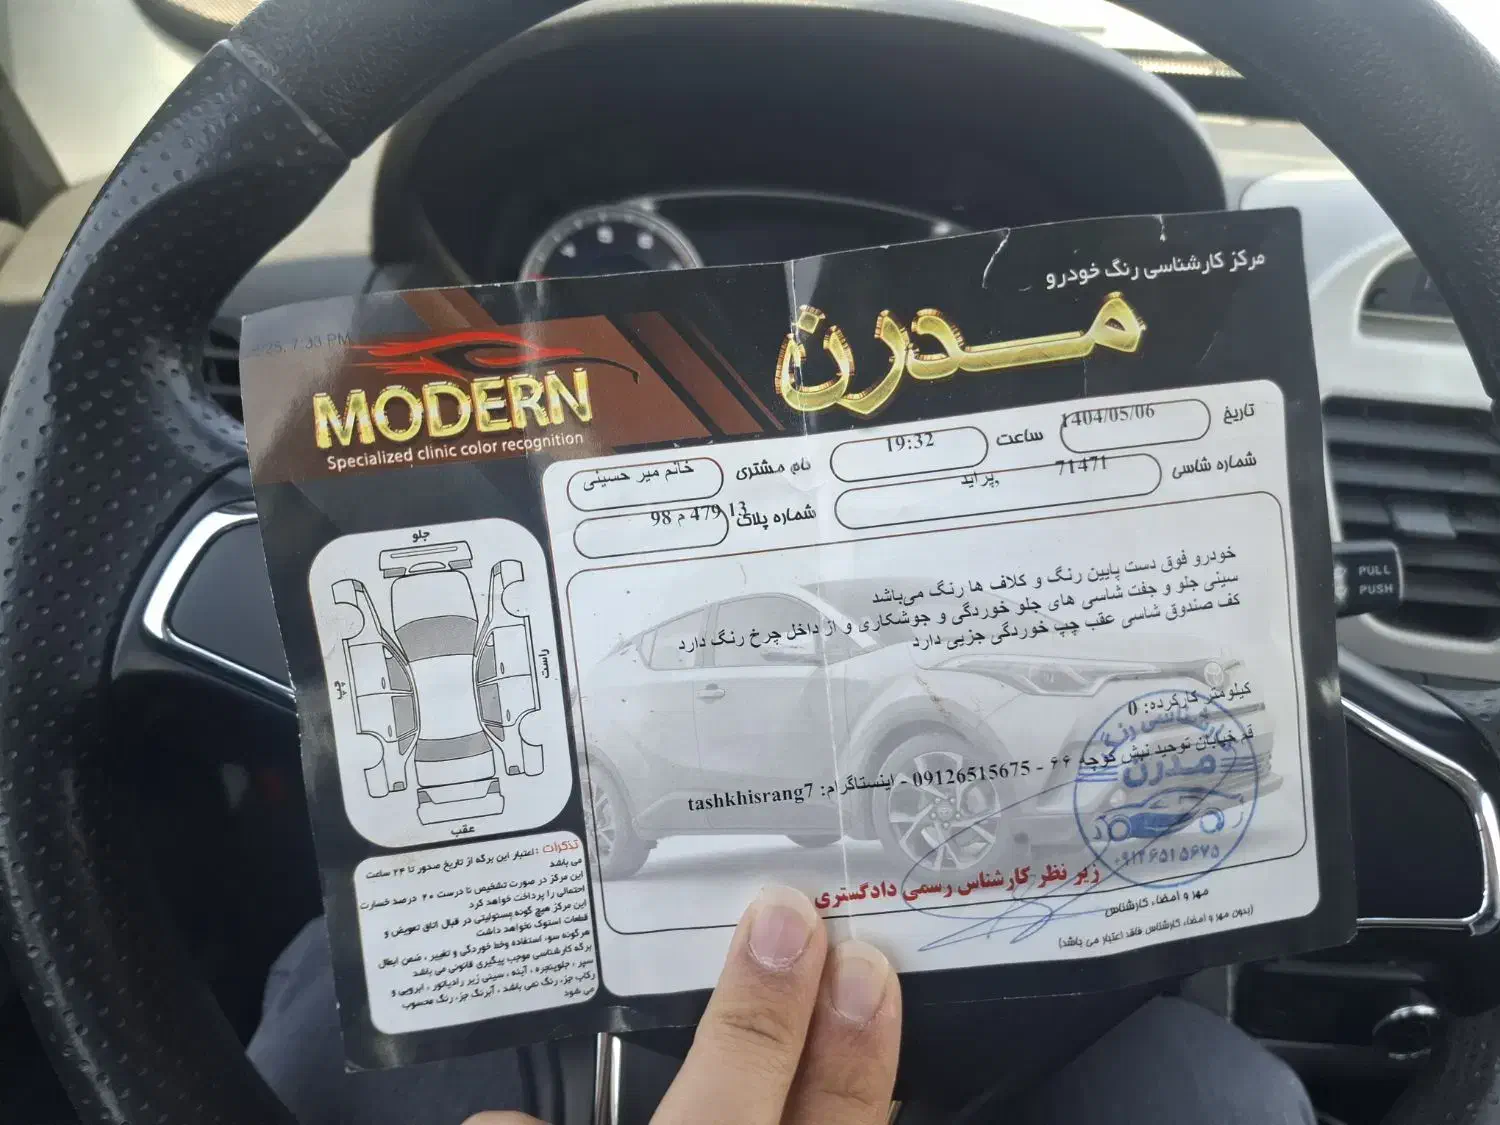 مرکز کارشناسی رنگ خودرو
مدرن
25, 7:33 PM
MODERN
Specialized clinic color recognition
تاریخ 1404/05/06 ساعت 19:32 نام مشتری خانم میر حسینی
شماره شاسی 71471 پراید, شماره پلاک 13 479 م 98
خودرو فوق دست پایین رنگ و کلاف ها رنگ می‌باشد
سینی جلو و جفت شاسی های جلو خوردگی و جوشکاری و از داخل چرخ رنگ دارد
کف صندوق شاسی عقب چپ خوردگی جزیی دارد
کیلومتر کارکرده: 0
قم خیابان توحید نبش کوچه ۶۶ - 09126515675 - اینستاگرام: tashkhisrang7
زیر نظر کارشناس رسمی دادگستری
مهر و امضاء کارشناس
(بدون مهر و امضاء کارشناس فاقد اعتبار می باشد)
کارشناسی رنگ
مدرن
۰۹۱۲۶۵۱۵۶۷۵
جلو
راست
چپ
عقب
تذکرات : اعتبار این برگه از تاریخ صدور تا ۲۴ ساعت
می باشد
این مرکز در صورت تشخیص نادرست ۲۰ درصد خسارت
احتمالی را پرداخت خواهد کرد
این مرکز هیچ گونه مسئولیتی در قبال اتاق تعویض و
قطعات استوک نخواهد داشت
هرگونه سوء استفاده وخط خوردگی و تغییر ، ضمن ابطال
برگه کارشناسی موجب پیگیری قانونی می باشد
سپر ، جلوپنجره ، آینه ، سینی زیر رادیاتور ، ابرویی و
رکاب جزء رنگ نمی باشد ، آبرنگ جزء رنگ محسوب
می شود
PULL
PUSH